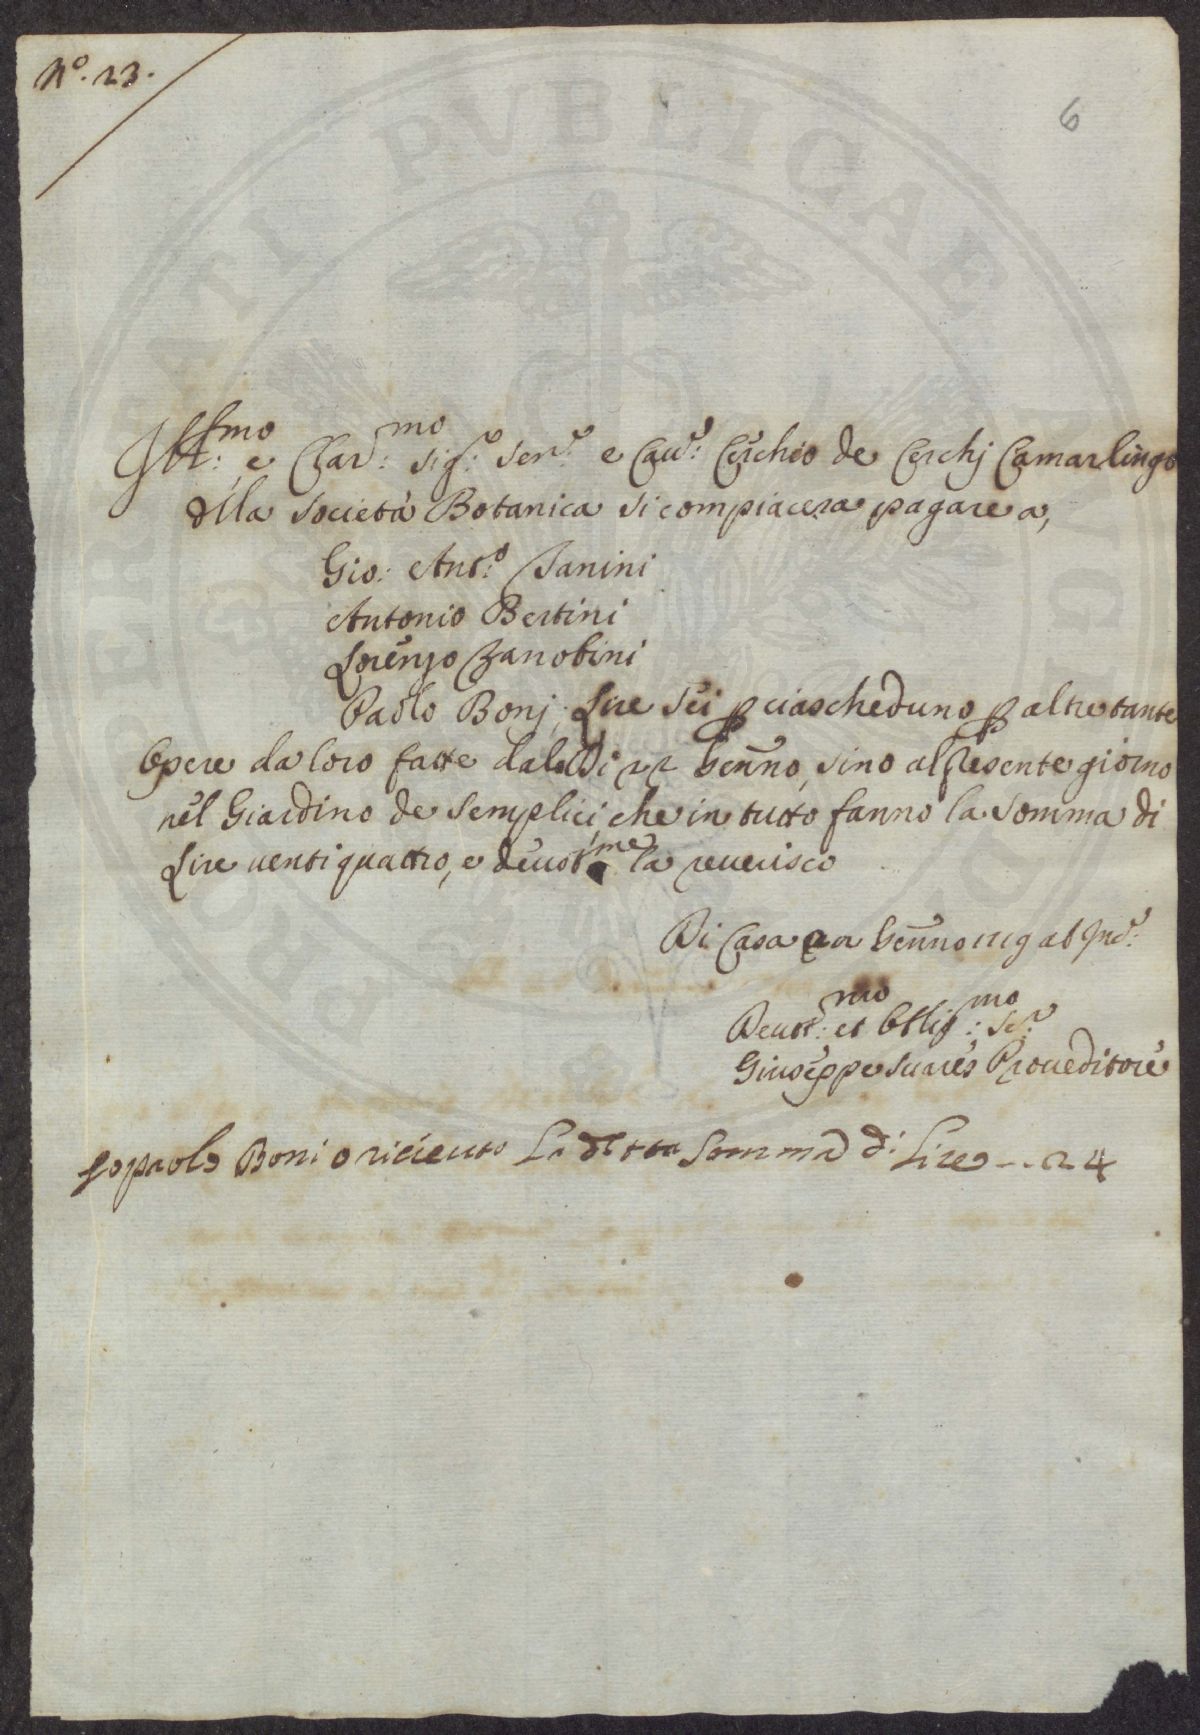 N.º 23.
6
Ill:mo e Char:mo Sig:r Sen:r e Cav:r Cerchio de Cerchj Camarlingo
della Società Botanica si compiacera pagare a,
Gio: Ant:o Janini
Antonio Bertini
Lorenzo Zanobini
Paolo Bonj; Lire sei p ciascheduno p altretante
Opere da loro fatte dal di 22 Genno, sino al presente giorno
nel Giardino de Semplici, che in tutto fanno la somma di
Lire venti quattro, e devot:me la reverisco
Di Casa Genno 1719 ab Inc:
Devot:mo et Oblig:mo Se:r
Giuseppe Suares Proveditore
Io paolo Boni o riceuto La detta Somma di Lire -- 24